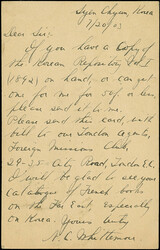 Syen Chyen, Korea
7/20/03
Dear Sir:
If you have a Copy of
the Korean Repository Vol I
(1892) on hand, or can get
one for me for 5/- or less
please send it to me.
Please send this card, with
bill to our London Agents,
Foreign Missions Club,
29-35- City Road, London E.C.
I would be glad to see your
Catalogue of French books
on the Far East, especially
on Korea. Yours truly
N. C. Whittemore